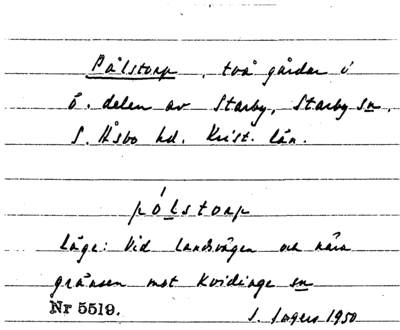 Pålstorp, två gårdar i
ö. delen av Starby, Starby sn.
S. Åsbo hd. Krist. län.
pólstorp
läge: Vid landsvägen och nära
gränsen mot Kvidinge sn
Nr 5519.
J. Ingers 1950